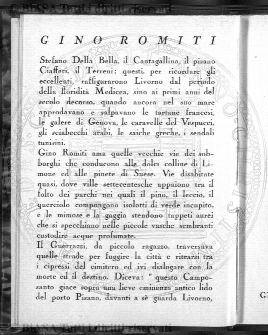 GINO ROMITI
Stefano Della Bella, il Cantagallina, il pisano
Ciafferi, il Terreni; questi, per ricordare gli
eccellenti, raffigurarono Livorno dal periodo
della floridità Medicea, sino ai primi anni del
secolo decorso, quando ancora nel suo mare
approdavano e salpavano le tartane francesi,
le galere di Genova, le caravelle del Vespucci,
gli sciabecchi arabi, le saiche greche, i sandali
tunisini.
Gino Romiti ama quelle vecchie vie dei sob-
borghi che conducono alle dolci colline di Li-
mone ed alle pinete di Suese. Vie disabitate
quasi, dove ville settecentesche appaiono tra il
folto dei parchi nei quali il pino, il leccio, il
querciolo compongono isolotti di verde incupito,
e le mimose e la gaggia stendono tappeti aurei
che si specchiano nelle piccole vasche sembranti
custodire acque profumate.
Il Guerrazzi, da piccolo ragazzo, traversava
quelle strade per fuggire la città e ritrarsi tra
i cipressi del cimitero ed ivi dialogare con la
morte ed il destino. Diceva: " questo Campo-
santo giace sopra una lieve eminenza antico lido
del porto Pisano, davanti a sè guarda Livorno,